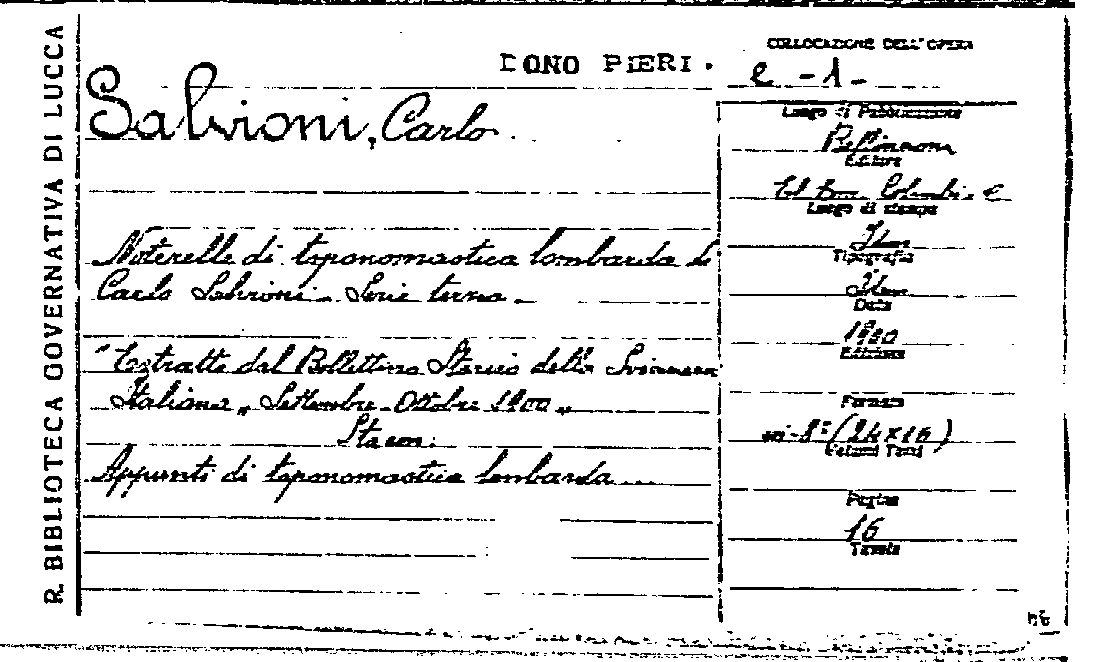 R. BIBLIOTECA GOVERNATIVA DI LUCCA
DONO PIERI.
COLLOCAZIONE DELL'OPERA
e - 1 -
Salvioni, Carlo.
Luogo di Pubblicazione
Bellinzona
Editore
Colombi e
Luogo di stampa
Idem
Tipografia
Idem
Data
1900
Edizione
Formato
in-8° (24x16)
Volumi Tomi
Pagine
16
Tavole
Noterelle di toponomastica lombarda di
Carlo Salvioni - Serie terza -
"Estratte dal Bollettino Storico della Svizzera
Italiana" Settembre-Ottobre 1900"
Appunti di toponomastica lombarda